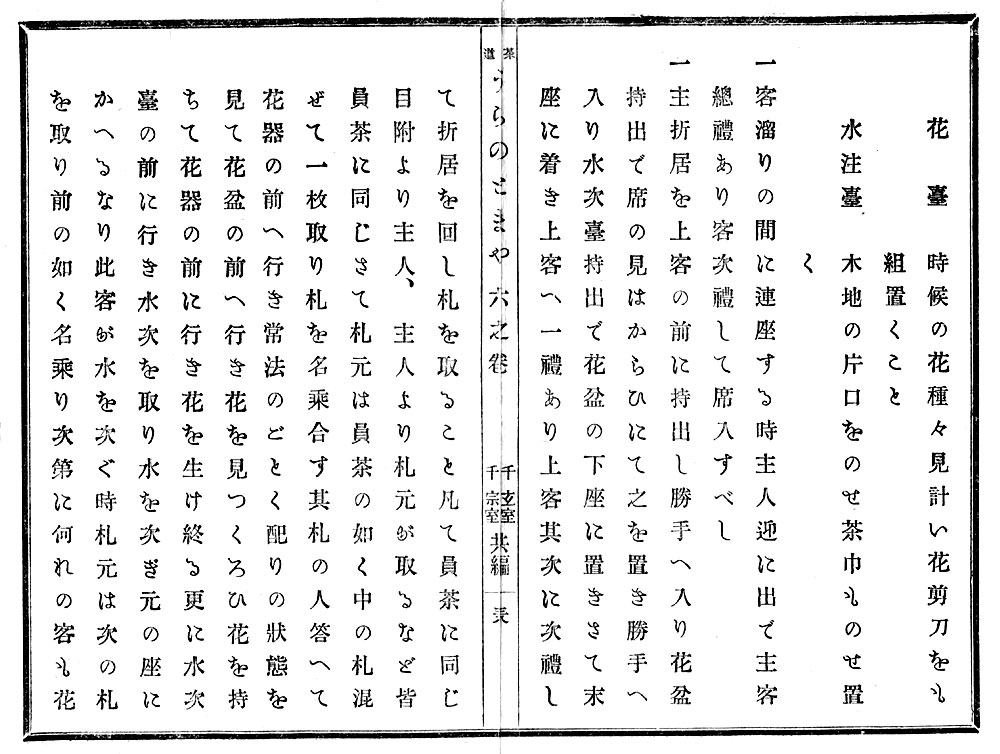 花　臺　時候の花種々見計い花剪刀をも
組置くこと
水注臺　木地の片口をのせ茶巾ものせ置
く
一客溜りの間に連座する時主人迎に出で主客
總禮あり客次禮して席入すべし
一主折居を上客の前に持出し勝手へ入り花盆
持出で席の見はからひにて之を置き勝手へ
入り水次臺持出で花盆の下座に置きさて末
座に着き上客へ一禮あり上客其次に次禮し
茶道うらのとまや六之卷　千玄室 千宗室 共編
て折居を回し札を取ること凡て員茶に同じ
目附より主人、主人より札元が取るなど皆
員茶に同じさて札元は員茶の如く中の札混
ぜて一枚取り札を名乘合す其札の人答へて
花器の前へ行き常法のごとく配りの狀態を
見て花盆の前へ行き花を見つくろひ花を持
ちて花器の前に行き花を生け終る更に水次
臺の前に行き水次を取り水を次ぎ元の座に
かへるなり此客が水を次ぐ時札元は次の札
を取り前の如く名乘り次第に何れの客も花